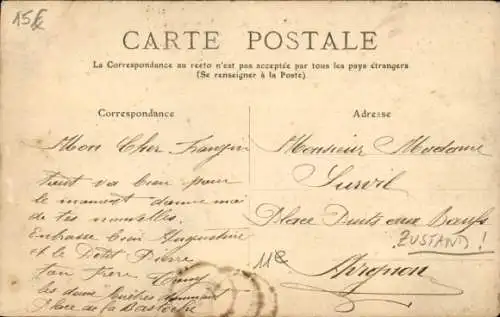 15€
CARTE POSTALE
La Correspondance au recto n'est pas acceptée par tous les pays étrangers
(Se renseigner à la Poste)
Correspondance
Adresse
Mon Cher Frangin
tout va bien pour
le moment donne moi
de tes nouvelles.
Embrasse bien Augustine
et le Petit Pierre
Ton Frère
les deux fenêtres donnant
Place de la Bastoche
Monsieur Madame
Survil
Place Puits aux Bœufs
ZUSTAND!
11€
Avignon